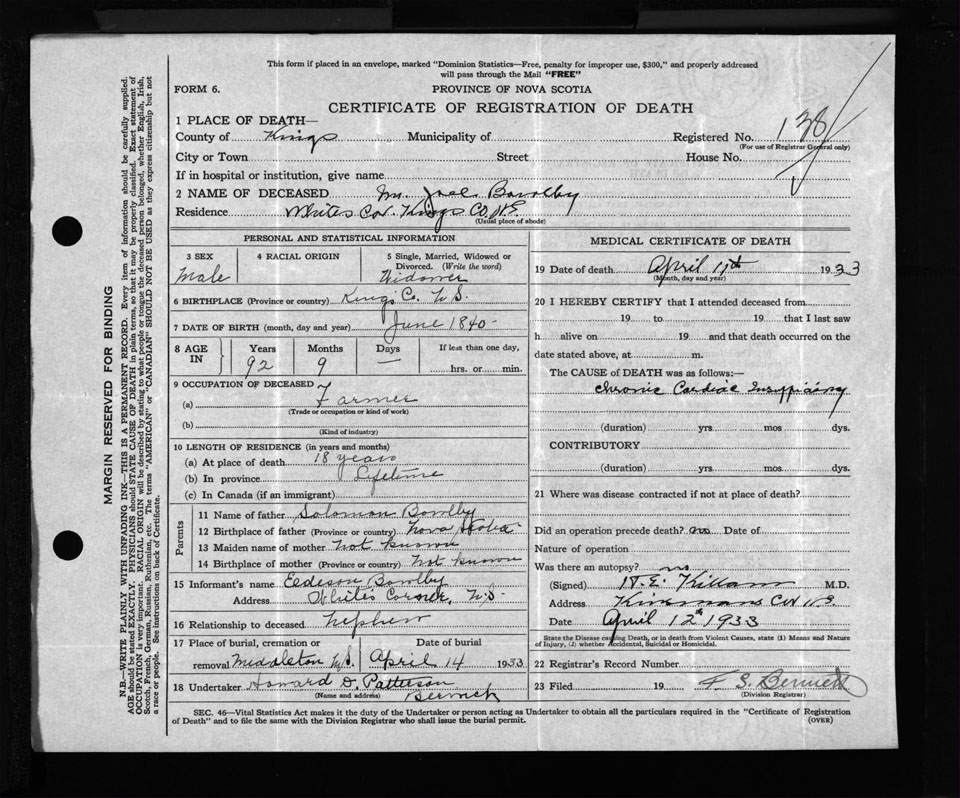 This form if placed in an envelope, marked "Dominion Statistics—Free, penalty for improper use, $300," and properly addressed
will pass through the Mail "FREE"
FORM 6.
PROVINCE OF NOVA SCOTIA
CERTIFICATE OF REGISTRATION OF DEATH
1 PLACE OF DEATH—
County of Kings Municipality of Registered No. 138
(For use of Registrar General only)
City or Town Street House No.
If in hospital or institution, give name
2 NAME OF DECEASED Joel Bowlby
Residence Whites Cor. Kings Co. N.S.
(Usual place of abode)
PERSONAL AND STATISTICAL INFORMATION
3 SEX 4 RACIAL ORIGIN 5 Single, Married, Widowed or
Divorced. (Write the word)
Male Widower
6 BIRTHPLACE (Province or country) Kings Co. N.S.
7 DATE OF BIRTH (month, day and year) June 1840-
8 AGE IN Years Months Days If less than one day,
92 9 — hrs. or min.
9 OCCUPATION OF DECEASED
(a) Farmer
(Trade or occupation or kind of work)
(b)
(Kind of industry)
10 LENGTH OF RESIDENCE (in years and months)
(a) At place of death 18 years
(b) In province Lifetime
(c) In Canada (if an immigrant)
Parents
11 Name of father Solomon Bowlby
12 Birthplace of father (Province or country) Nova Scotia
13 Maiden name of mother not known
14 Birthplace of mother (Province or country) not known
15 Informant's name Bowlby
Address Whites Corner, N.S.
16 Relationship to deceased nephew
17 Place of burial, cremation or Date of burial
removal Middleton N.S. April 14 1933
18 Undertaker Howard D. Patterson
(Name and address) Berwick
MEDICAL CERTIFICATE OF DEATH
19 Date of death April 11th 1933
(Month, day and year)
20 I HEREBY CERTIFY that I attended deceased from
19 to 19 that I last saw
h alive on 19 and that death occurred on the
date stated above, at m.
The CAUSE of DEATH was as follows:—
Chronic Cardiac Insufficiency
(duration) yrs mos dys.
CONTRIBUTORY
(duration) yrs. mos dys.
21 Where was disease contracted if not at place of death?
Did an operation precede death? no Date of
Nature of operation
Was there an autopsy? no
(Signed) Killam M.D.
Address Kinsmans Cor N.S
Date April 12th 1933
State the Disease causing Death, or in death from Violent Causes, state (1) Means and Nature
of Injury, (2) whether Accidental, Suicidal or Homicidal.
22 Registrar's Record Number
23 Filed 19 F. S. Bennett
(Division Registrar)
SEC. 46—Vital Statistics Act makes it the duty of the Undertaker or person acting as Undertaker to obtain all the particulars required in the "Certificate of Registration
of Death" and to file the same with the Division Registrar who shall issue the burial permit.
(OVER)
MARGIN RESERVED FOR BINDING
N.B.—WRITE PLAINLY WITH UNFADING INK—THIS IS A PERMANENT RECORD. Every item of information should be carefully supplied.
AGE should be stated EXACTLY. PHYSICIANS should STATE CAUSE OF DEATH in plain terms, so that it may be properly classified. Exact statement of
OCCUPATION is very important. RACIAL ORIGIN will be described by stating to what people or tongue the deceased person belonged, whether English, Irish,
Scotch, French, German, Russian, Ruthenian, etc. The terms "AMERICAN" or "CANADIAN" SHOULD NOT BE USED as they express citizenship but not
a race or people. See instructions on back of Certificate.